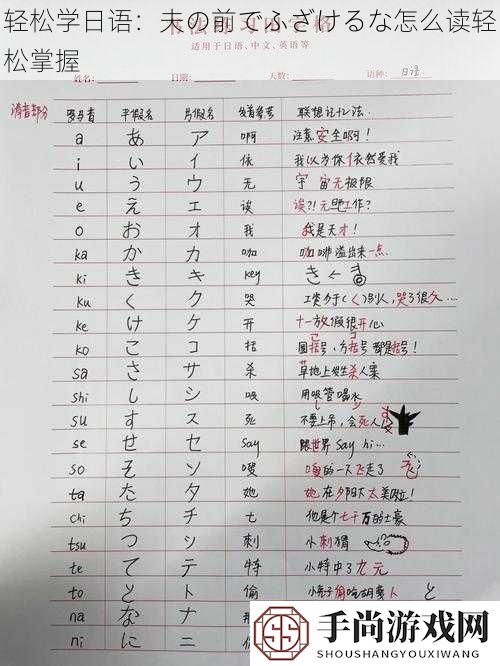 轻松学日语：夫の前でふざけるな怎么读轻
松掌握
适用于日语、中文、英语等
姓名： 日期： 语种： 日语
清音部分 罗马音 平假名 片假名 发音参考 联想记忆法
a あ ア 啊 注意安全啊！
i い イ 依 我以为你依然爱我
u う ウ 无 宇宙无极限
e え エ 诶 诶?!
o お オ 我 我是天才！
ka か カ 咖 咖啡溢出来一点
ki き キ key き ←
ku く ク 哭 哭了很久…
ke け ケ 开 十一放假很开心
ko こ コ 括 圆括号，方括号都是括号！
sa さ サ 杀 草地上发生杀人案
shi し シ 吸 用吸管喝水
su す ス 死 不要上吊，会死人！
se せ セ say 跟世界 say hi…
so そ ソ 嗖 嗖的一下飞走了
ta た タ 她 她在夕阳下太美啦！
chi ち チ 七 他是个七千万的土豪
tsu つ ツ 刺 小刺猬
te て テ 特 小特中了九元
to と ト 偷 と
na な ナ
ni に ニ
手尚游戏网
SHOUSHANGYOUXIWANG